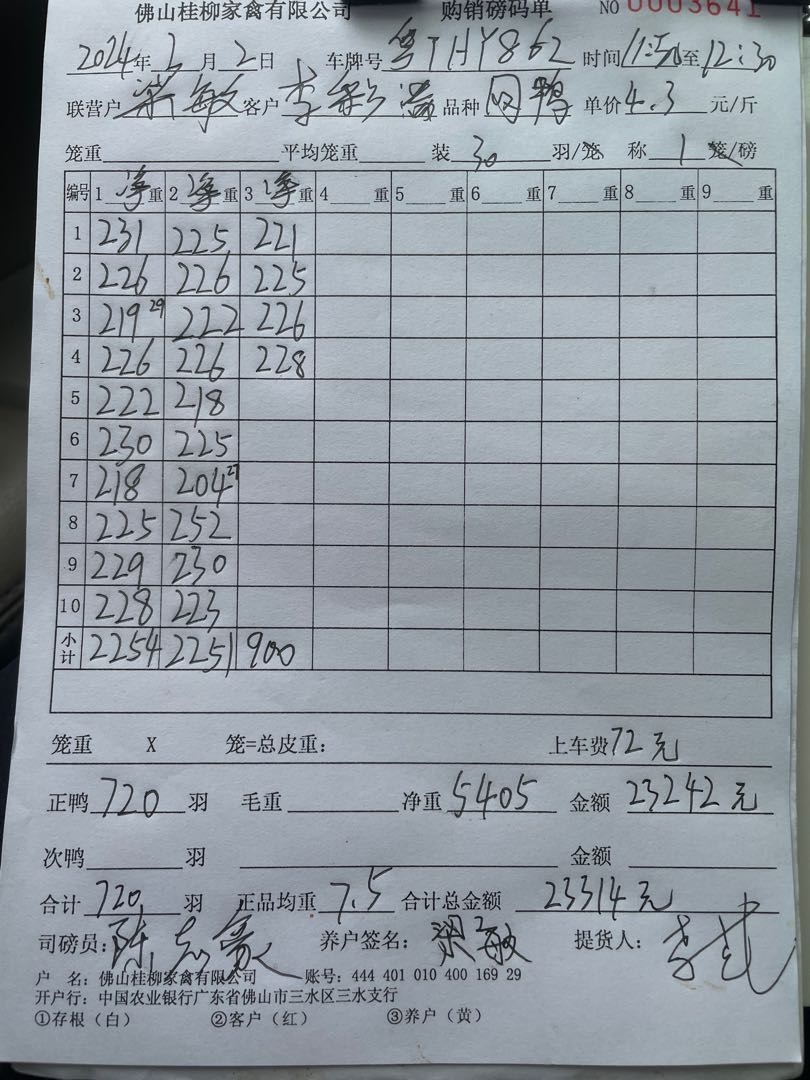 佛山桂柳家禽有限公司 购销磅码单 NO 0003641
2024年2月2日 车牌号 粤THY862 时间 11:30至12:30
联营户 梁敏 客户 李 品种 鸭 单价4.3元/斤
笼重 平均笼重 装30羽/笼 称1笼/磅
编号 1净重 2净重 3净重 4重 5重 6重 7重 8重 9重
1 231 225 221
2 226 226 225
3 219 29 222 226
4 226 226 228
5 222 218
6 230 225
7 218 204 27
8 225 252
9 229 230
10 228 223
小计 2254 2251 900
笼重 X 笼=总皮重： 上车费72元
正鸭720羽 毛重 净重5405 金额23242元
次鸭 羽 金额
合计720羽 正品均重7.5 合计总金额23314元
司磅员：陈志豪 养户签名：梁敏 提货人：李
户 名：佛山桂柳家禽有限公司 账号：444 401 010 400 169 29
开户行：中国农业银行广东省佛山市三水区三水支行
①存根（白） ②客户（红） ③养户（黄）